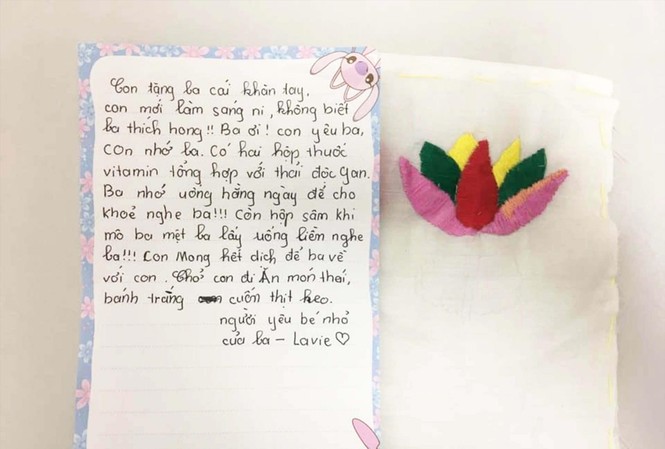 Con tặng ba cái khăn tay.
con mới làm sáng ni, không biết
ba thích hong!! Ba ơi! con yêu ba,
con nhớ ba. Có hai hộp thuốc
vitamin tổng hợp với thải độc gan.
Ba nhớ uống hằng ngày để cho
khoẻ nghe ba!!! Còn hộp sâm khi
mô ba mệt ba lấy uống liền nghe
ba!!! Con Mong hết dịch để ba về
với con. Chở con đi Ăn món thái,
bánh trắng cuốn thịt heo.
người yêu bé nhỏ
của ba - Lavie ♡